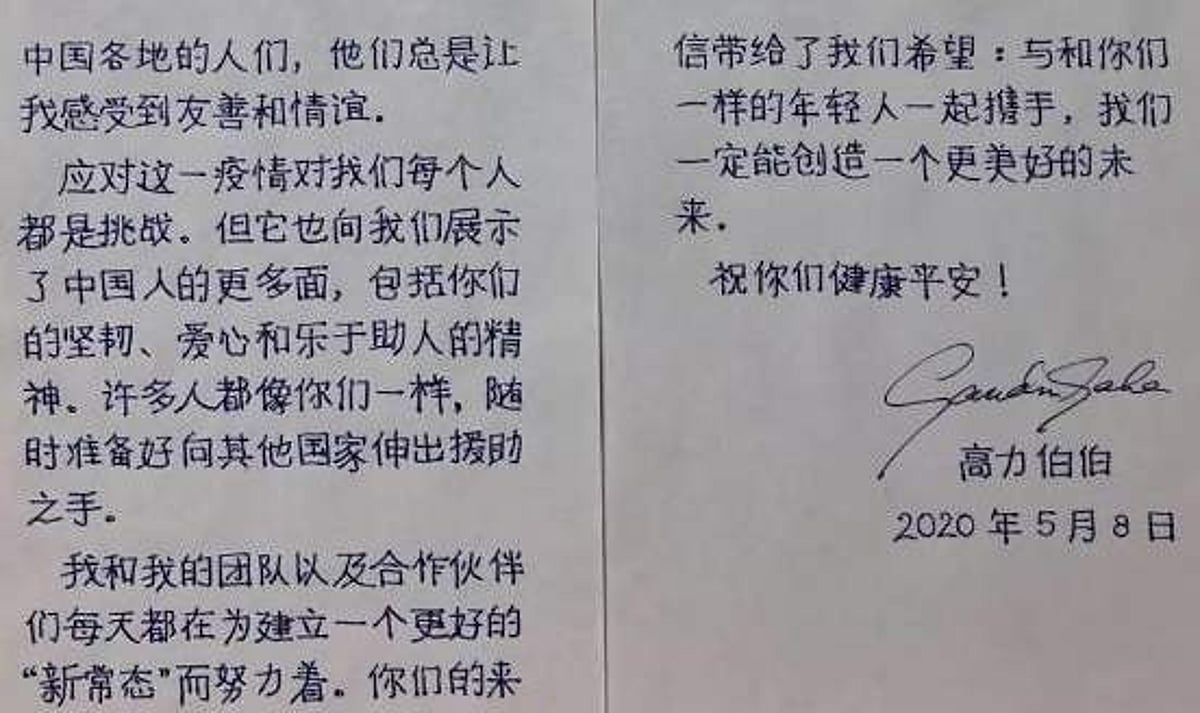 中国各地的人们，他们总是让
我感受到友善和情谊.
应对这一疫情对我们每个人
都是挑战。但它也向我们展示
了中国人的更多面，包括你们
的坚韧、爱心和乐于助人的精
神。许多人都像你们一样，随
时准备好向其他国家伸出援助
之手。
我和我的团队以及合作伙伴
们每天都在为建立一个更好的
“新常态”而努力着。你们的来
信带给了我们希望：与和你们
一样的年轻人一起携手，我们
一定能创造一个更美好的未
来.
祝你们健康平安！
高力伯伯
2020年5月8日